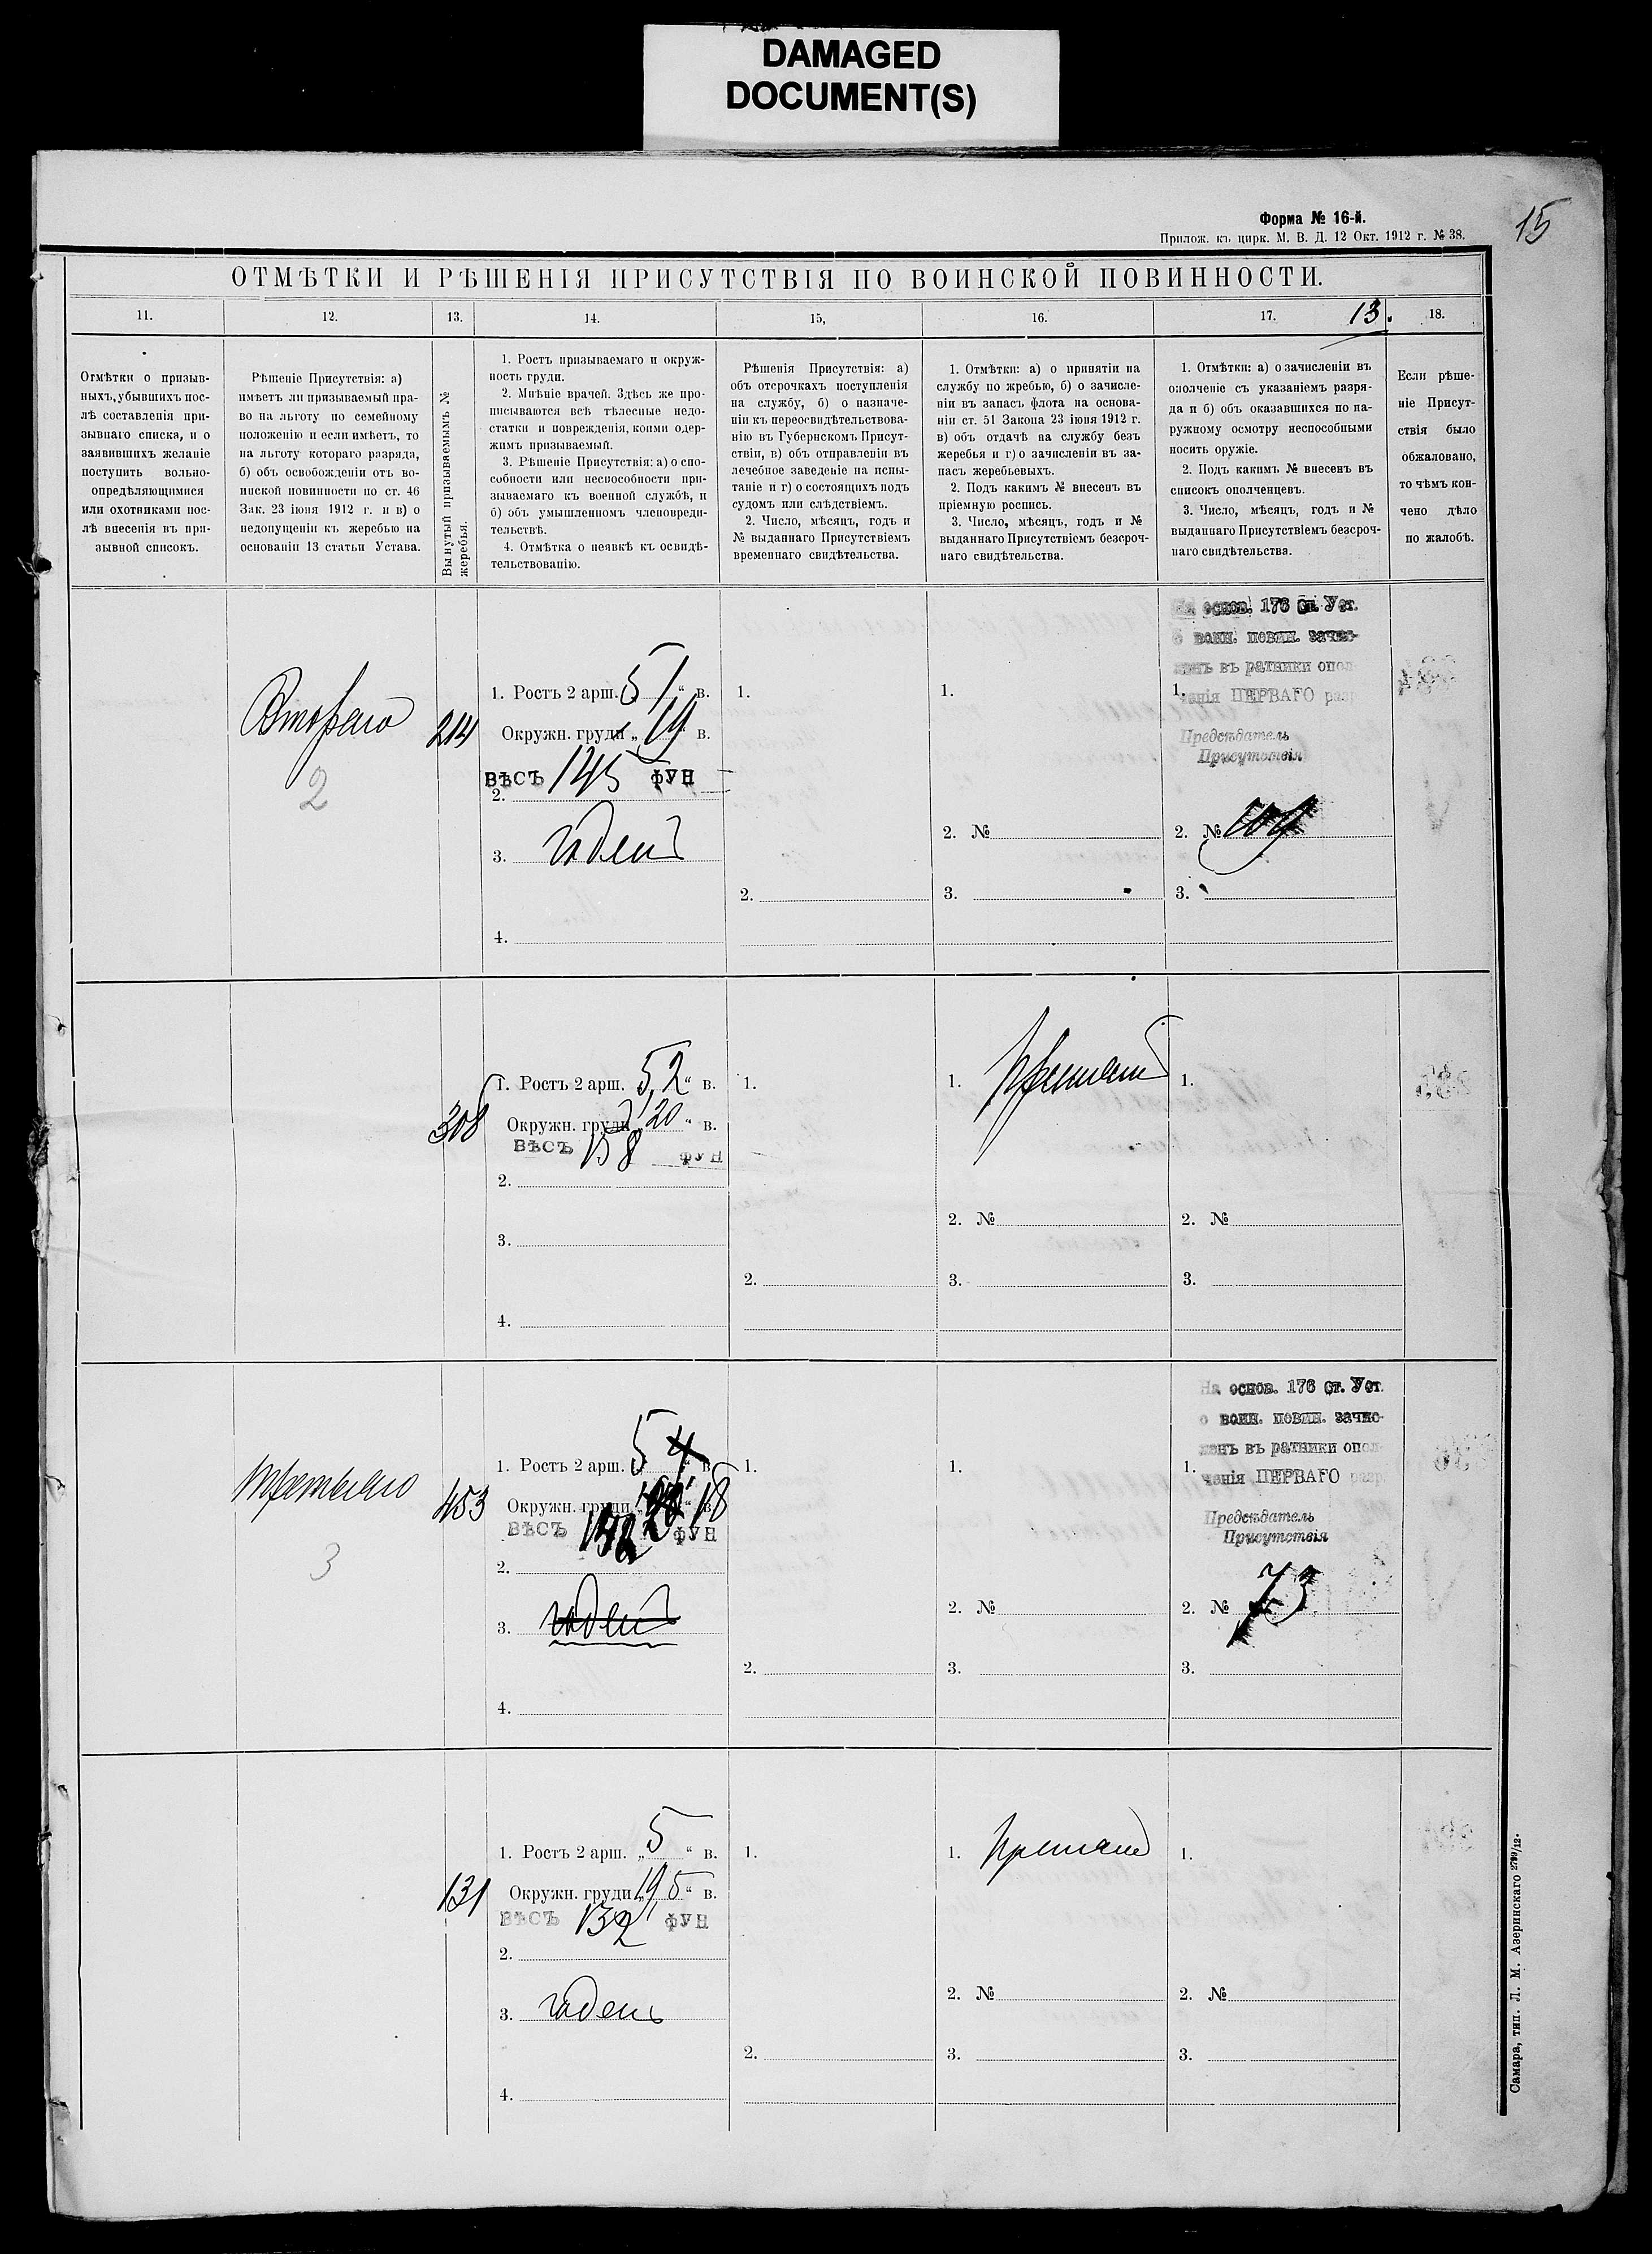 DAMAGED
DOCUMENT(S)
Форма № 16-й.
Прилож. къ цирк. М. В. Д. 12 Окт. 1912 г. № 38.
15
ОТМѢТКИ И РѢШЕНІЯ ПРИСУТСТВІЯ ПО ВОИНСКОЙ ПОВИННОСТИ.
11.
12.
13.
14.
15,
16.
17.
13.
18.
Отмѣтки о призыв-
ныхъ, убывшихъ пос-
лѣ составленія при-
зывнаго списка, и о
заявившихъ желаніе
поступить вольно-
опредѣляющимися
или охотниками пос-
лѣ внесенія въ при-
зывной списокъ.
Рѣшеніе Присутствія: а)
имѣетъ ли призываемый пра-
во на льготу по семейному
положенію и если имѣетъ, то
на льготу котораго разряда,
б) объ освобожденіи отъ во-
инской повинности по ст. 46
Зак. 23 іюня 1912 г. и в) о
недопущеніи къ жеребью на
основаніи 13 статьи Устава.
Вынутый призываемымъ №
жеребья.
1. Ростъ призываемаго и окруж-
ность груди.
2. Мнѣніе врачей. Здѣсь же про-
писываются всѣ тѣлесные недо-
статки и поврежденія, коими одер-
жимъ призываемый.
3. Рѣшеніе Присутствія: а) о спо-
собности или неспособности при-
зываемаго къ военной службѣ, и
б) объ умышленномъ членовреди-
тельствѣ.
4. Отмѣтка о неявкѣ къ освидѣ-
тельствованію.
Рѣшенія Присутствія: а)
объ отсрочкахъ поступленія
на службу, б) о назначе-
ніи къ переосвидѣтельствова-
нію въ Губернскомъ Присут-
ствіи, в) объ отправленіи въ
лечебное заведеніе на испы-
таніе и г) о состоящихъ подъ
судомъ или слѣдствіемъ.
2. Число, мѣсяцъ, годъ и
№ выданнаго Присутствіемъ
временнаго свидѣтельства.
1. Отмѣтки: а) о принятіи на
службу по жребью, б) о зачисле-
ніи въ запасъ флота на основа-
ніи ст. 51 Закона 23 іюня 1912 г.
в) объ отдачѣ на службу безъ
жеребья и г) о зачисленіи въ за-
пасъ жеребьевыхъ.
2. Подъ какимъ № внесенъ въ
пріемную роспись.
3. Число, мѣсяцъ, годъ и №
выданнаго Присутствіемъ безсроч-
наго свидѣтельства.
1. Отмѣтки: а) о зачисленіи въ
ополченіе съ указаніемъ разря-
да и б) объ оказавшихся по на-
ружному осмотру неспособными
носить оружіе.
2. Подъ какимъ № внесенъ въ
списокъ ополченцевъ.
3. Число, мѣсяцъ, годъ и №
выданнаго Присутствіемъ безсроч-
наго свидѣтельства.
Если рѣше-
ніе Присут-
ствія было
обжаловано,
то чѣмъ кон-
чено дѣло
по жалобѣ.
Втораго
2
214
1. Ростъ 2 арш. „ 5 1 “ в.
Окружн. груди „ 19 “ в.
ВѢСЪ 145 ФУН
2.
3. годенъ
4.
1.
2.
1.
2. №
3.
На основ. 176 ст. Уст.
о воин. повин. зачис-
ленъ въ ратники опол-
1. ченія ПЕРВАГО раз
Предсѣдатель
Присутствія
2. №
3.
308
1. Ростъ 2 арш. 5,2 “ в.
Окружн. груди „ 20 “ в.
ВѢСЪ 138 ФУН
2.
3.
4.
1.
2.
1. Принятъ
2. №
3.
1.
2. №
3.
Третьяго
3
453
1. Ростъ 2 арш. „ 5 4 “ в.
Окружн. груди „ 18 “ в.
ВѢСЪ ФУН
2.
3. годенъ
4.
1.
2.
1.
2. №
3.
На основ. 176 ст. Уст.
о воин. повин. зачис-
ленъ въ ратники опол-
1. ченія ПЕРВАГО разр
Предсѣдатель
Присутствія
2. № 73
3.
131
1. Ростъ 2 арш. „ 5 “ в.
Окружн. груди „ 19,5 “ в.
ВѢСЪ 132 ФУН
2.
3. годенъ
4.
1.
2.
1. Принятъ
2. №
3.
1.
2. №
3.
Самара, тип. Л. М. Азеринскаго